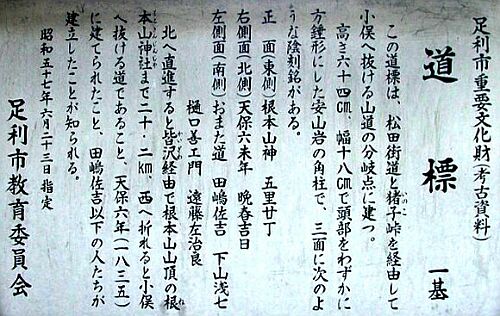 足利市重要文化財(考古資料)
道標 一基
この道標は、松田街道と猪子峠を経由して
小俣へ抜ける山道の分岐点に建つ。
高さ六十四㎝、幅十八㎝で頭部をわずかに
方錘形にした安山岩の角柱で、三面に次のよ
うな陰刻銘がある。
正 面(東側)根本山神 五里廿丁
右側面(北側)天保六未年 晩春吉日
左側面(南側)おまた道 田嶋佐吉 下山浅七
樋口善エ門 遠藤左治良
北へ直進すると皆沢経由で根本山山頂の根
本山神社まで二十・二㎞ 西へ折れると小俣
へ抜ける道であること、天保六年(一八三五)
に建てられたこと、田嶋佐吉以下の人たちが
建立したことが知られる。
昭和五十七年六月二十三日 指定
足利市教育委員会